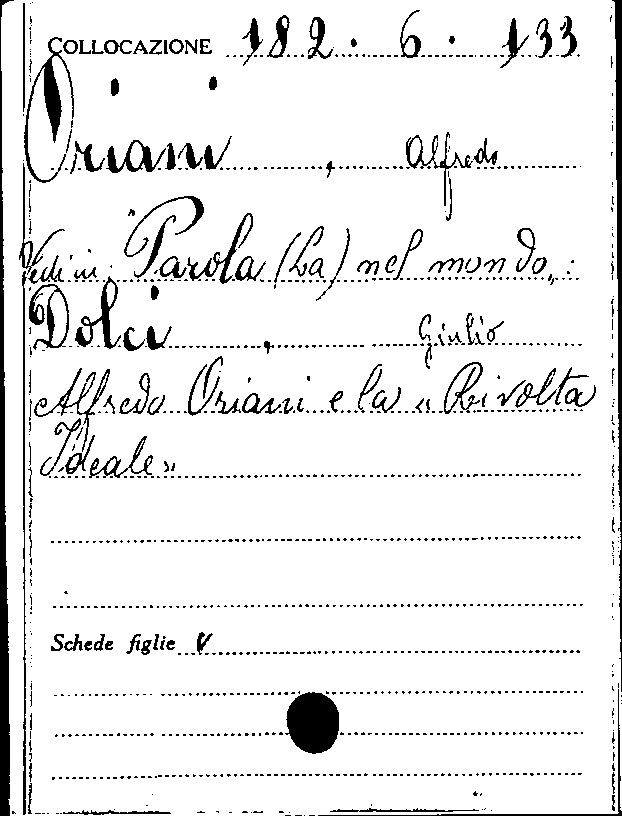 COLLOCAZIONE 182 . 6 . 133
Oriani , Alfredo
Vedi in: "Parola (La) nel mondo„ :
Dolci , Giulio
Alfredo Oriani e la « Rivolta
Ideale »
Schede figlie V